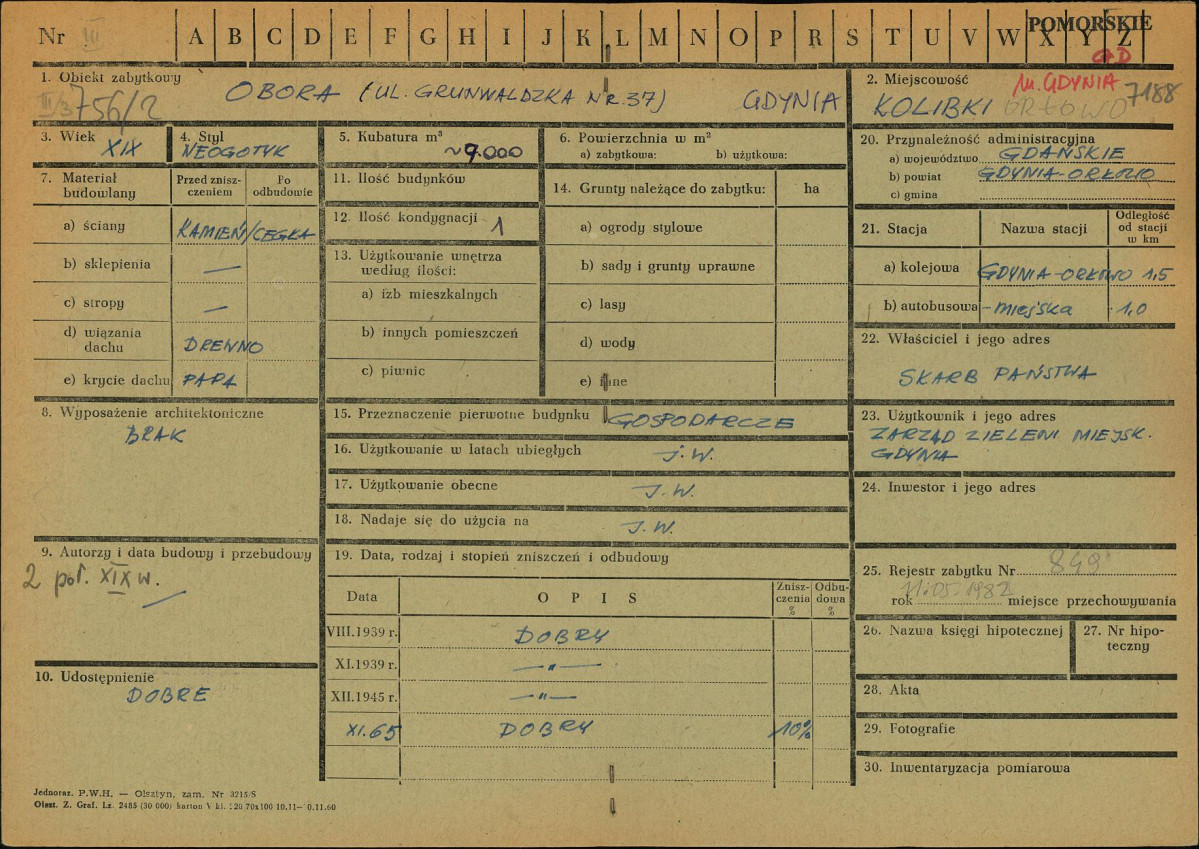 Nr III A B C D E F G H I J K L M N O P R S T U V W X Y Z
POMORSKIE
GD
1. Obiekt zabytkowy
III/3 756/2
OBORA (UL. GRUNWALDZKA NR. 37) GDYNIA
2. Miejscowość
m. GDYNIA
KOLIBKI ORŁOWO 7188
3. Wiek
XIX
4. Styl
NEOGOTYK
5. Kubatura m³
~9.000
6. Powierzchnia w m²
a) zabytkowa: b) użytkowa:
20. Przynależność administracyjna
a) województwo GDAŃSKIE
b) powiat GDYNIA-ORŁOWO
c) gmina
7. Materiał budowlany
Przed znisz-
czeniem
Po
odbudowie
a) ściany KAMIEŃ/CEGŁA
b) sklepienia —
c) stropy —
d) wiązania
dachu DREWNO
e) krycie dachu PAPA
11. Ilość budynków
12. Ilość kondygnacji 1
13. Użytkowanie wnętrza
według ilości:
a) izb mieszkalnych
b) innych pomieszczeń
c) piwnic
14. Grunty należące do zabytku: ha
a) ogrody stylowe
b) sady i grunty uprawne
c) lasy
d) wody
e) inne
21. Stacja Nazwa stacji
Odległość
od stacji
w km
a) kolejowa GDYNIA-ORŁOWO 1,5
b) autobusowa - miejska 1,0
22. Właściciel i jego adres
SKARB PAŃSTWA
8. Wyposażenie architektoniczne
BRAK
15. Przeznaczenie pierwotne budynku GOSPODARCZE
16. Użytkowanie w latach ubiegłych J.W.
17. Użytkowanie obecne J.W.
18. Nadaje się do użycia na J.W.
23. Użytkownik i jego adres
ZARZĄD ZIELENI MIEJSK.
GDYNIA
24. Inwestor i jego adres
9. Autorzy i data budowy i przebudowy
2 poł. XIX w.
—
19. Data, rodzaj i stopień zniszczeń i odbudowy
Data OPIS
Znisz-
czenia
%
Odbu-
dowa
%
VIII.1939 r. DOBRY
XI.1939 r. —„—
XII.1945 r. —„—
XI.65 DOBRY 10%
25. Rejestr zabytku Nr 849
rok 11.05.1982 miejsce przechowywania
26. Nazwa księgi hipotecznej
27. Nr hipo-
teczny
10. Udostępnienie
DOBRE
28. Akta
29. Fotografie
30. Inwentaryzacja pomiarowa
Jednoraz. P.W.H. — Olsztyn, zam. Nr 3215/S
Olszt. Z. Graf. Lz. 2485 (30 000) karton V kl. 220 70x100 10.11—10.11.60